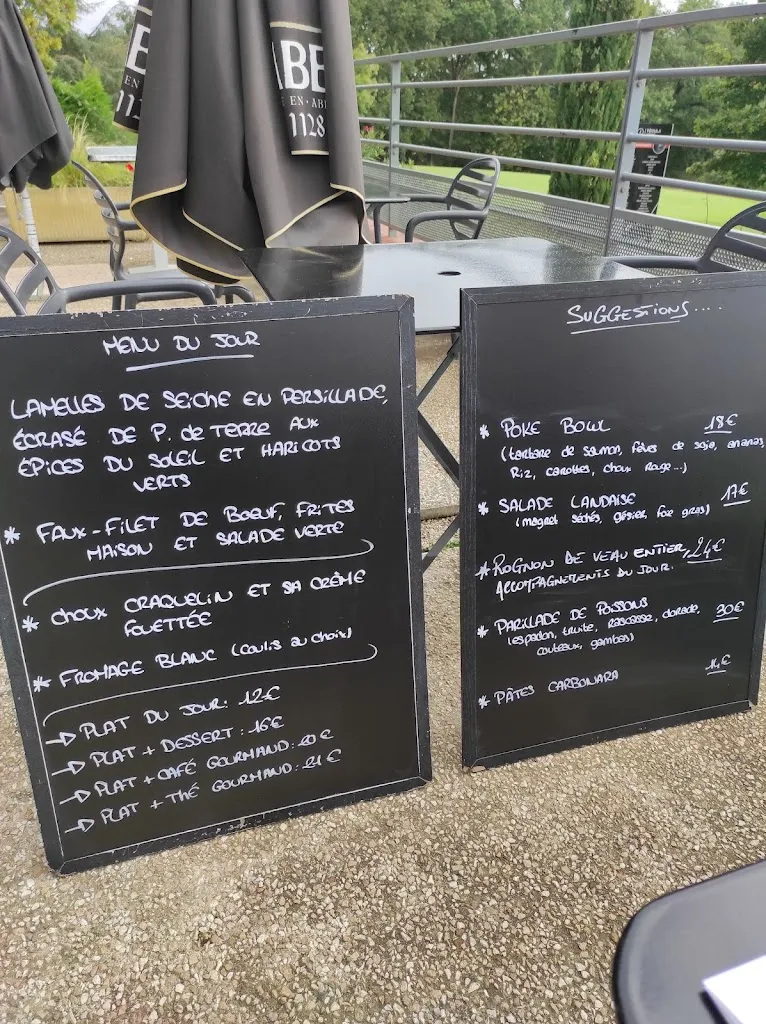 ABE
EN · AB
1128
MENU DU JOUR
LAMELLES DE SEICHE EN PERSILLADE,
ÉCRASÉ DE P. de TERRE AUX
ÉPICES DU SOLEIL ET HARICOTS
VERTS
* FAUX-FILET DE BOEUF, FRITES
MAISON ET SALADE VERTE
* CHOUX CRAQUELIN ET SA CRÈME
FOUETTÉE
* FROMAGE BLANC (coulis au choix)
→ PLAT DU JOUR: 12€
→ PLAT + DESSERT : 16€
→ PLAT + CAFÉ GOURMAND: 20€
→ PLAT + THÉ GOURMAND: 21€
SUGGESTIONS....
* POKE BOWL 18€
(tartare de saumon, fèves de soja, ananas,
Riz, carottes, choux Rouge...)
* SALADE LANDAISE 17€
(magret séchés, gésier, foie gras)
* ROGNON DE VEAU ENTIER, 24€
ACCOMPAGNEMENTS DU JOUR.
* PARILLADE DE POISSONS 30€
(espadon, truite, rascasse, dorade,
couteaux, gambas)
* PÂTES CARBONARA 14€